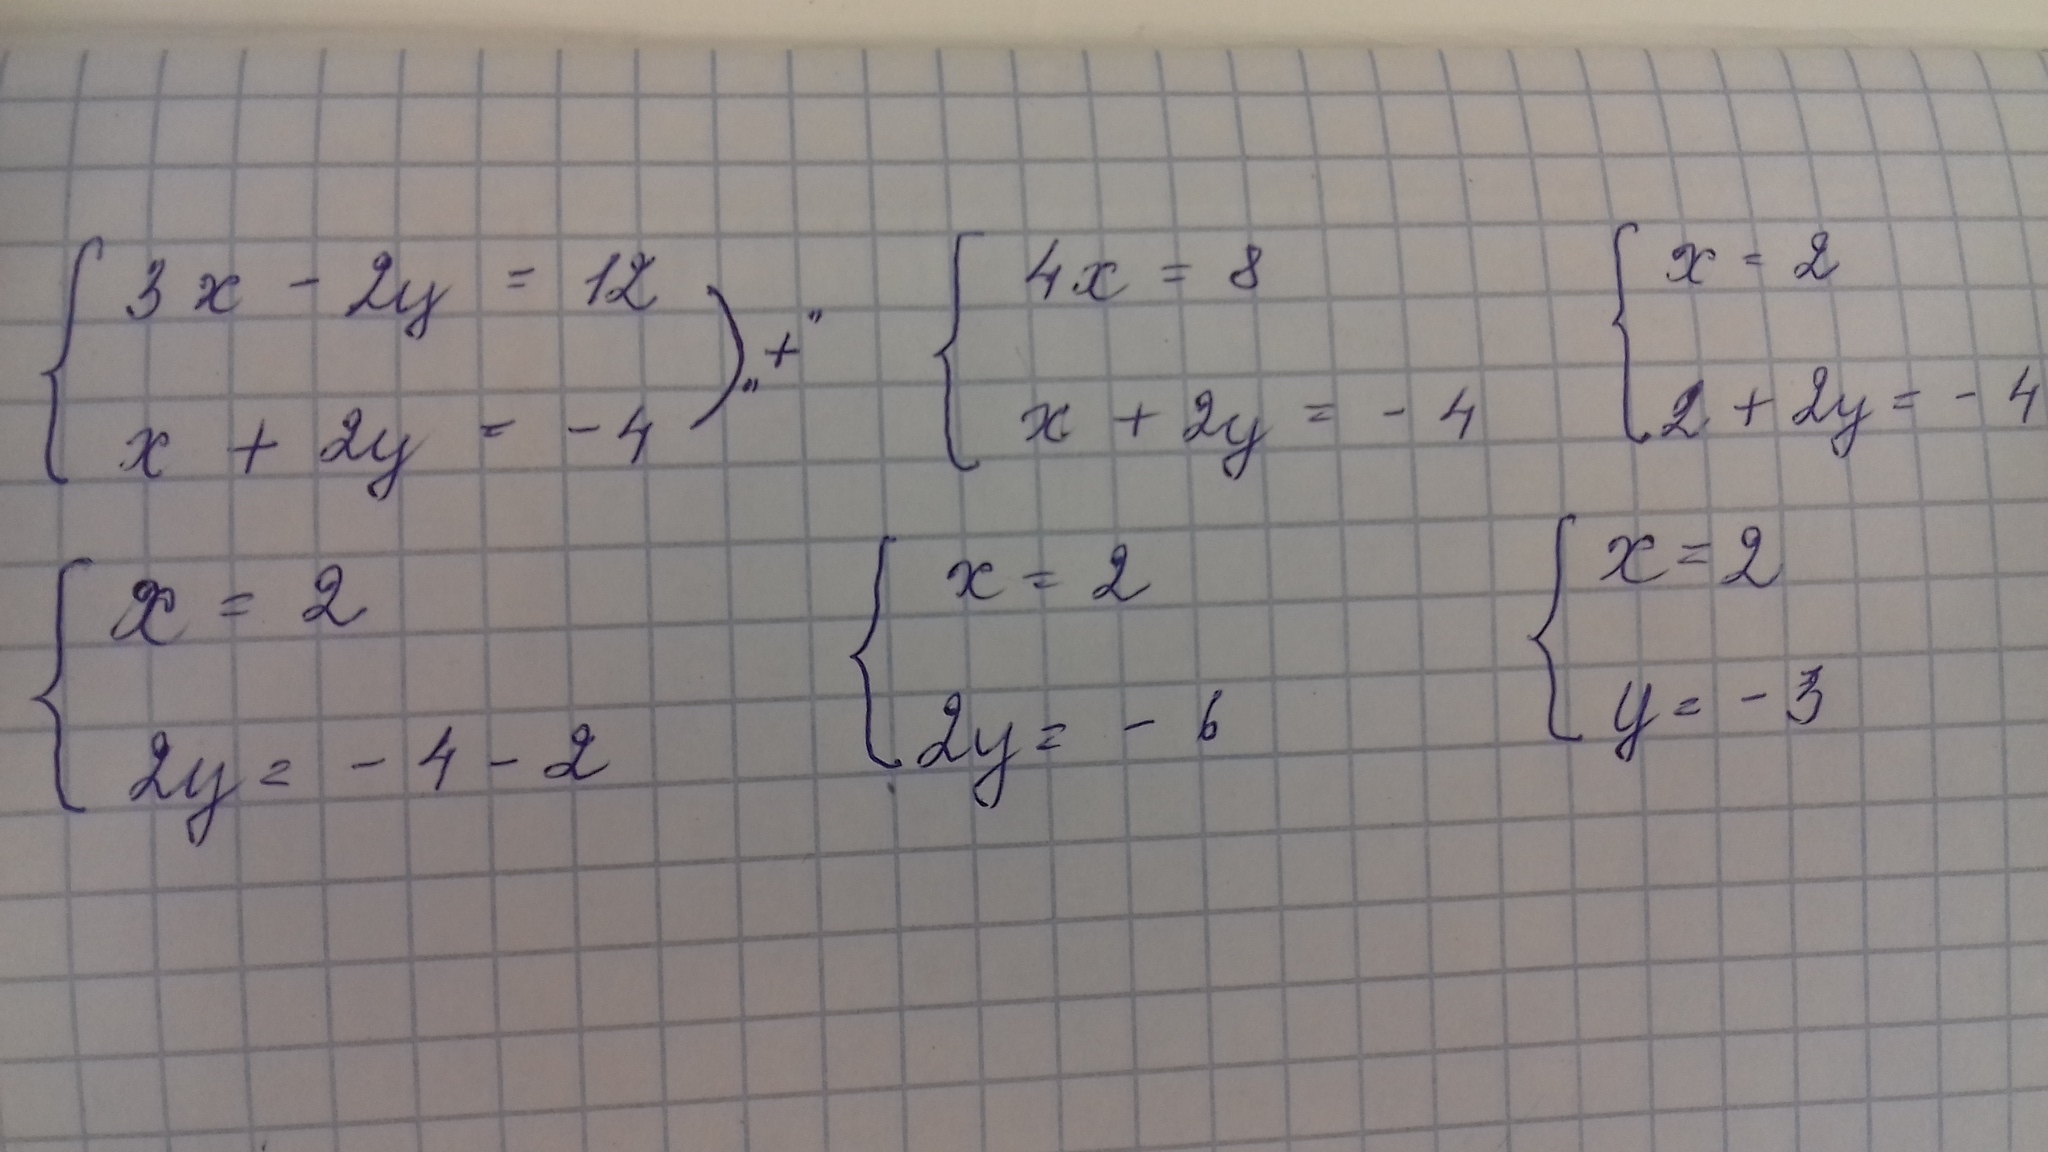 3x - 2y = 12
x + 2y = -4
„+"
4x = 8
x + 2y = -4
x = 2
2 + 2y = -4
x = 2
2y = -4 - 2
x = 2
2y = -6
x = 2
y = -3